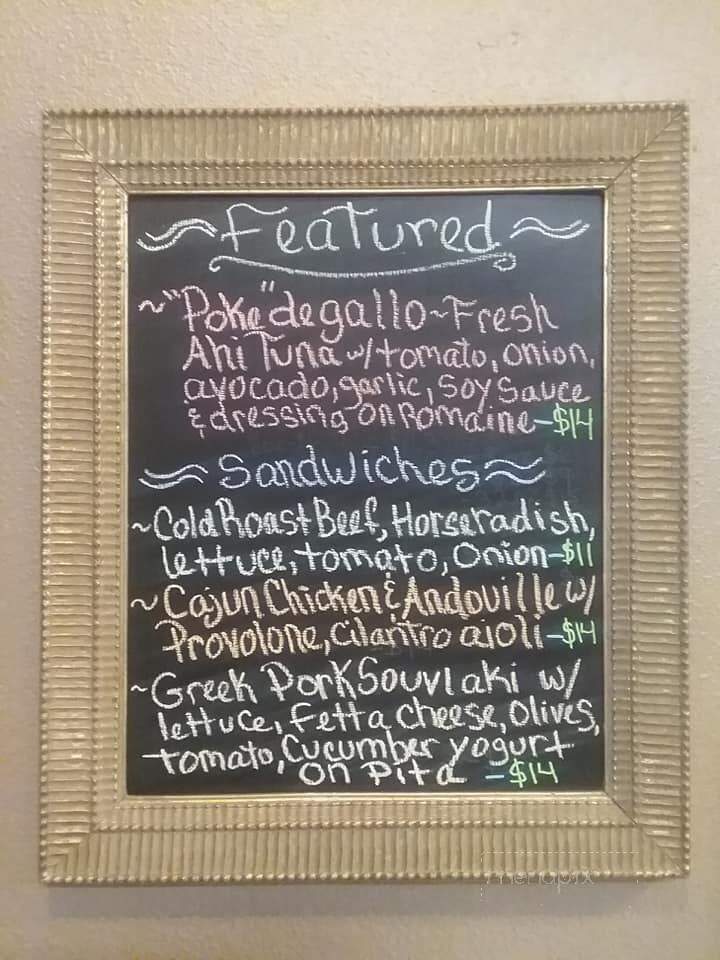 ~Featured~
~"Poke" de gallo ~ Fresh
Ahi Tuna w/ tomato, onion,
avocado, garlic, Soy Sauce
& dressing on Romaine - $14
~Sandwiches~
~Cold Roast Beef, Horseradish,
lettuce, tomato, Onion - $11
~Cajun Chicken & Andouille w/
Provolone, Cilantro aioli - $14
~Greek Pork Souvlaki w/
lettuce, Fetta Cheese, Olives,
tomato, Cucumber yogurt
on Pita - $14
menupix